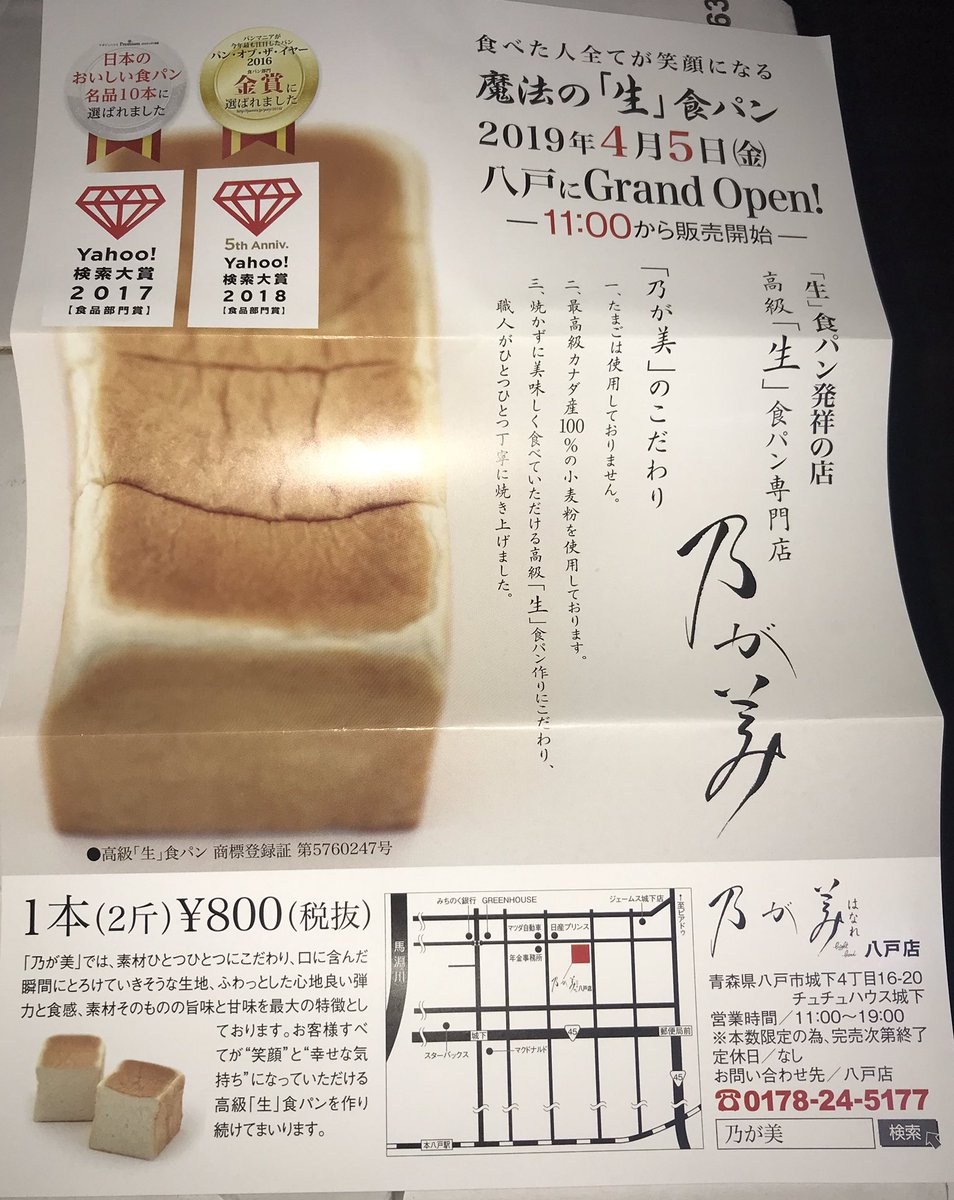 63
Premium
日本の
おいしい食パン
名品10本に
選ばれました
パンマニアが
今年最も注目したパン
パン・オブ・ザ・イヤー
2016
食パン部門
金賞に
選ばれました
Yahoo!
検索大賞
2017
【食品部門賞】
5th Anniv.
Yahoo!
検索大賞
2018
【食品部門賞】
食べた人全てが笑顔になる
魔法の「生」食パン
2019年4月5日㈮
八戸にGrand Open!
―11:00から販売開始―
「生」食パン発祥の店
高級「生」食パン専門店
乃が美
「乃が美」のこだわり
一、たまごは使用しておりません。
二、最高級カナダ産100%の小麦粉を使用しております。
三、焼かずに美味しく食べていただける高級「生」食パン作りにこだわり、
職人がひとつひとつ丁寧に焼き上げました。
●高級「生」食パン 商標登録証 第5760247号
1本(2斤)¥800(税抜)
「乃が美」では、素材ひとつひとつにこだわり、口に含んだ
瞬間にとろけていきそうな生地、ふわっとした心地良い弾
力と食感、素材そのものの旨味と甘味を最大の特徴とし
ております。お客様すべ
てが“笑顔”と“幸せな気
持ち”になっていただける
高級「生」食パンを作り
続けてまいります。
みちのく銀行
GREENHOUSE
ジェームス城下店
↑至ピアドゥ
マツダ自動車
日産プリンス
年金事務所
馬淵川
乃が美 八戸店
城下
45
郵便局前
スターバックス
マクドナルド
45
本八戸駅
乃が美 はなれ
八戸店
青森県八戸市城下4丁目16-20
チュチュハウス城下
営業時間/11:00〜19:00
※本数限定の為、完売次第終了
定休日/なし
お問い合わせ先/八戸店
☎0178-24-5177
乃が美 検索